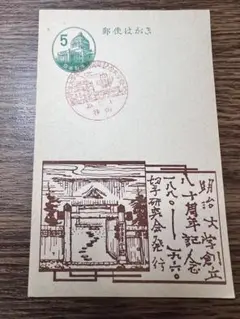 郵便はがき
5
明治大学創立
八十周年記念
一八八〇—一九六〇
切手研究会発行